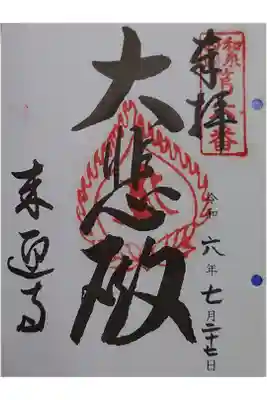 奉拝
大悲殿
令和六年七月二十七日
来迎寺